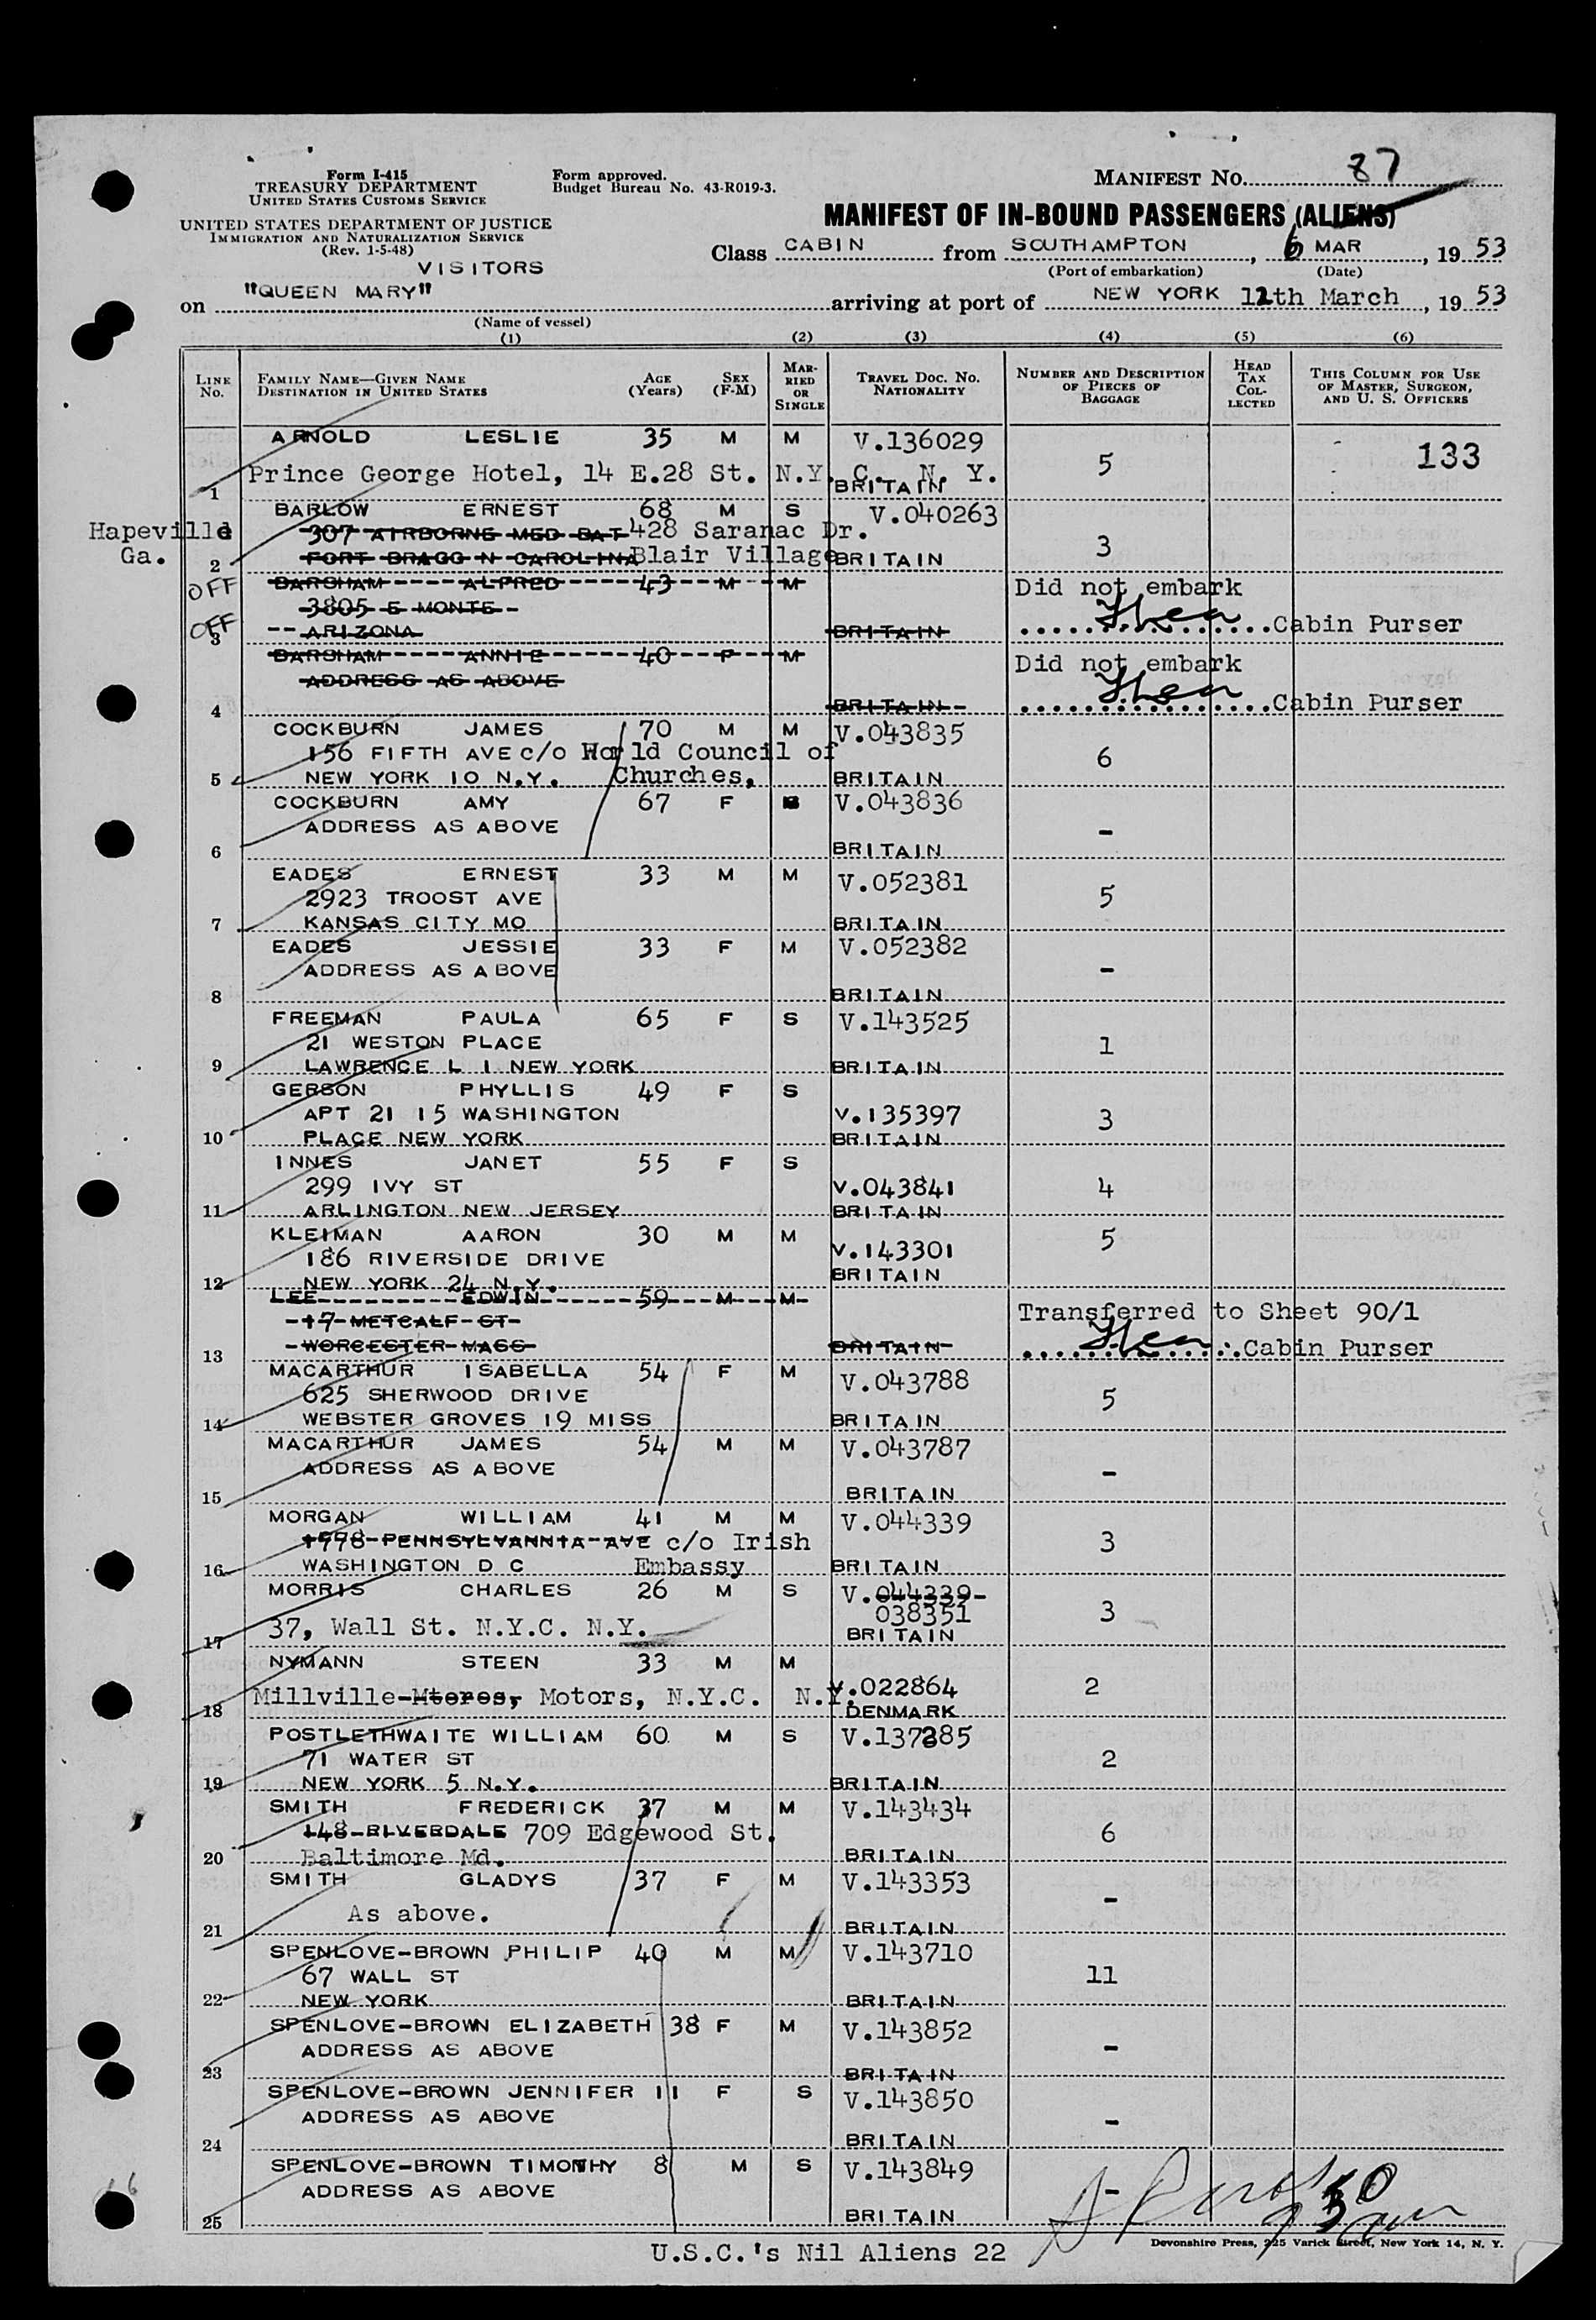 Form I-415
TREASURY DEPARTMENT
UNITED STATES CUSTOMS SERVICE
Form approved.
Budget Bureau No. 43-R019-3.
MANIFEST NO. 87
UNITED STATES DEPARTMENT OF JUSTICE
IMMIGRATION AND NATURALIZATION SERVICE
(Rev. 1-5-48)
MANIFEST OF IN-BOUND PASSENGERS (ALIENS)
Class CABIN from SOUTHAMPTON, 6 MAR, 1953
(Port of embarkation) (Date)
VISITORS
on "QUEEN MARY" arriving at port of NEW YORK 11th March, 1953
(Name of vessel)
(1) (2) (3) (4) (5) (6)
LINE NO.
FAMILY NAME—GIVEN NAME
DESTINATION IN UNITED STATES
AGE (Years)
SEX (F-M)
MARRIED OR SINGLE
TRAVEL DOC. NO. NATIONALITY
NUMBER AND DESCRIPTION OF PIECES OF BAGGAGE
HEAD TAX COLLECTED
THIS COLUMN FOR USE OF MASTER, SURGEON, AND U. S. OFFICERS
ARNOLD LESLIE 35 M M V.136029 5 133
1 Prince George Hotel, 14 E.28 St. N.Y. C. N. Y. BRITAIN
BARLOW ERNEST 68 M S V.040263 3
Hapeville 307 AIRBORNE MED BAT 428 Saranac Dr.
Ga. 2 FORT BRAGG N CAROLINA Blair Village BRITAIN
OFF BARSHAM ALFRED 43 M M Did not embark
3805 E MONTE
OFF 3 ARIZONA BRITAIN Cabin Purser
BARSHAM ANNIE 40 F M Did not embark
ADDRESS AS ABOVE
4 BRITAIN Cabin Purser
COCKBURN JAMES 70 M M V.043835 6
156 FIFTH AVE c/o World Council of
5 NEW YORK 10 N.Y. Churches, BRITAIN
COCKBURN AMY 67 F V.043836 -
ADDRESS AS ABOVE
6 BRITAIN
EADES ERNEST 33 M M V.052381 5
2923 TROOST AVE
7 KANSAS CITY MO BRITAIN
EADES JESSIE 33 F M V.052382 -
ADDRESS AS ABOVE
8 BRITAIN
FREEMAN PAULA 65 F S V.143525 1
21 WESTON PLACE
9 LAWRENCE L I NEW YORK BRITAIN
GERSON PHYLLIS 49 F S
APT 21 15 WASHINGTON V.135397 3
10 PLACE NEW YORK BRITAIN
INNES JANET 55 F S
299 IVY ST V.043841 4
11 ARLINGTON NEW JERSEY BRITAIN
KLEIMAN AARON 30 M M 5
186 RIVERSIDE DRIVE V.143301
12 NEW YORK 24 N.Y. BRITAIN
LEE EDWIN 59 M M
17 METCALF ST Transferred to Sheet 90/1
13 WORCESTER MASS BRITAIN Cabin Purser
MACARTHUR ISABELLA 54 F M V.043788 5
625 SHERWOOD DRIVE
14 WEBSTER GROVES 19 MISS BRITAIN
MACARTHUR JAMES 54 M M V.043787 -
ADDRESS AS ABOVE
15 BRITAIN
MORGAN WILLIAM 41 M M V.044339 3
1778 PENNSYLVANNIA AVE c/o Irish
16 WASHINGTON D C Embassy BRITAIN
MORRIS CHARLES 26 M S V.044339 3
038351
17 37, Wall St. N.Y.C. N.Y. BRITAIN
NYMANN STEEN 33 M M
Millville Mtores, Motors, N.Y.C. N.Y. V.022864 2
18 DENMARK
POSTLETHWAITE WILLIAM 60 M S V.137285 2
71 WATER ST
19 NEW YORK 5 N.Y. BRITAIN
SMITH FREDERICK 37 M M V.143434 6
148 RIVERDALE 709 Edgewood St.
20 Baltimore Md. BRITAIN
SMITH GLADYS 37 F M V.143353 -
As above.
21 BRITAIN
SPENLOVE-BROWN PHILIP 40 M M V.143710 11
67 WALL ST
22 NEW YORK BRITAIN
SPENLOVE-BROWN ELIZABETH 38 F M V.143852 -
ADDRESS AS ABOVE
23 BRITAIN
SPENLOVE-BROWN JENNIFER 11 F S V.143850 -
ADDRESS AS ABOVE
24 BRITAIN
SPENLOVE-BROWN TIMOTHY 8 M S V.143849 -
ADDRESS AS ABOVE
25 BRITAIN
U.S.C.'s Nil Aliens 22
Devonshire Press, 225 Varick Street, New York 14, N. Y.